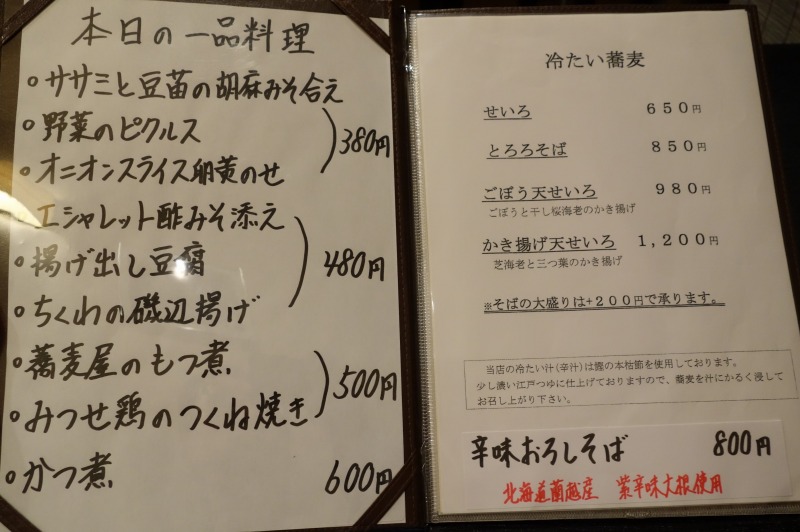 本日の一品料理
ササミと豆苗の胡麻みそ合え
野菜のピクルス
オニオンスライス卵黄のせ
380円
エシャレット酢みそ添え
揚げ出し豆腐
ちくわの磯辺揚げ
480円
蕎麦屋のもつ煮
みつせ鶏のつくね焼き
500円
かつ煮 600円
冷たい蕎麦
せいろ 650円
とろろそば 850円
ごぼう天せいろ 980円
ごぼうと干し桜海老のかき揚げ
かき揚げ天せいろ 1,200円
芝海老と三つ葉のかき揚げ
※そばの大盛りは+200円で承ります。
当店の冷たい汁(辛汁)は鰹の本枯節を使用しております。
少し濃い江戸つゆに仕上げておりますので、蕎麦を汁にかるく浸して
お召し上がり下さい。
辛味おろしそば 800円
北海道蘭越産 紫辛味大根使用